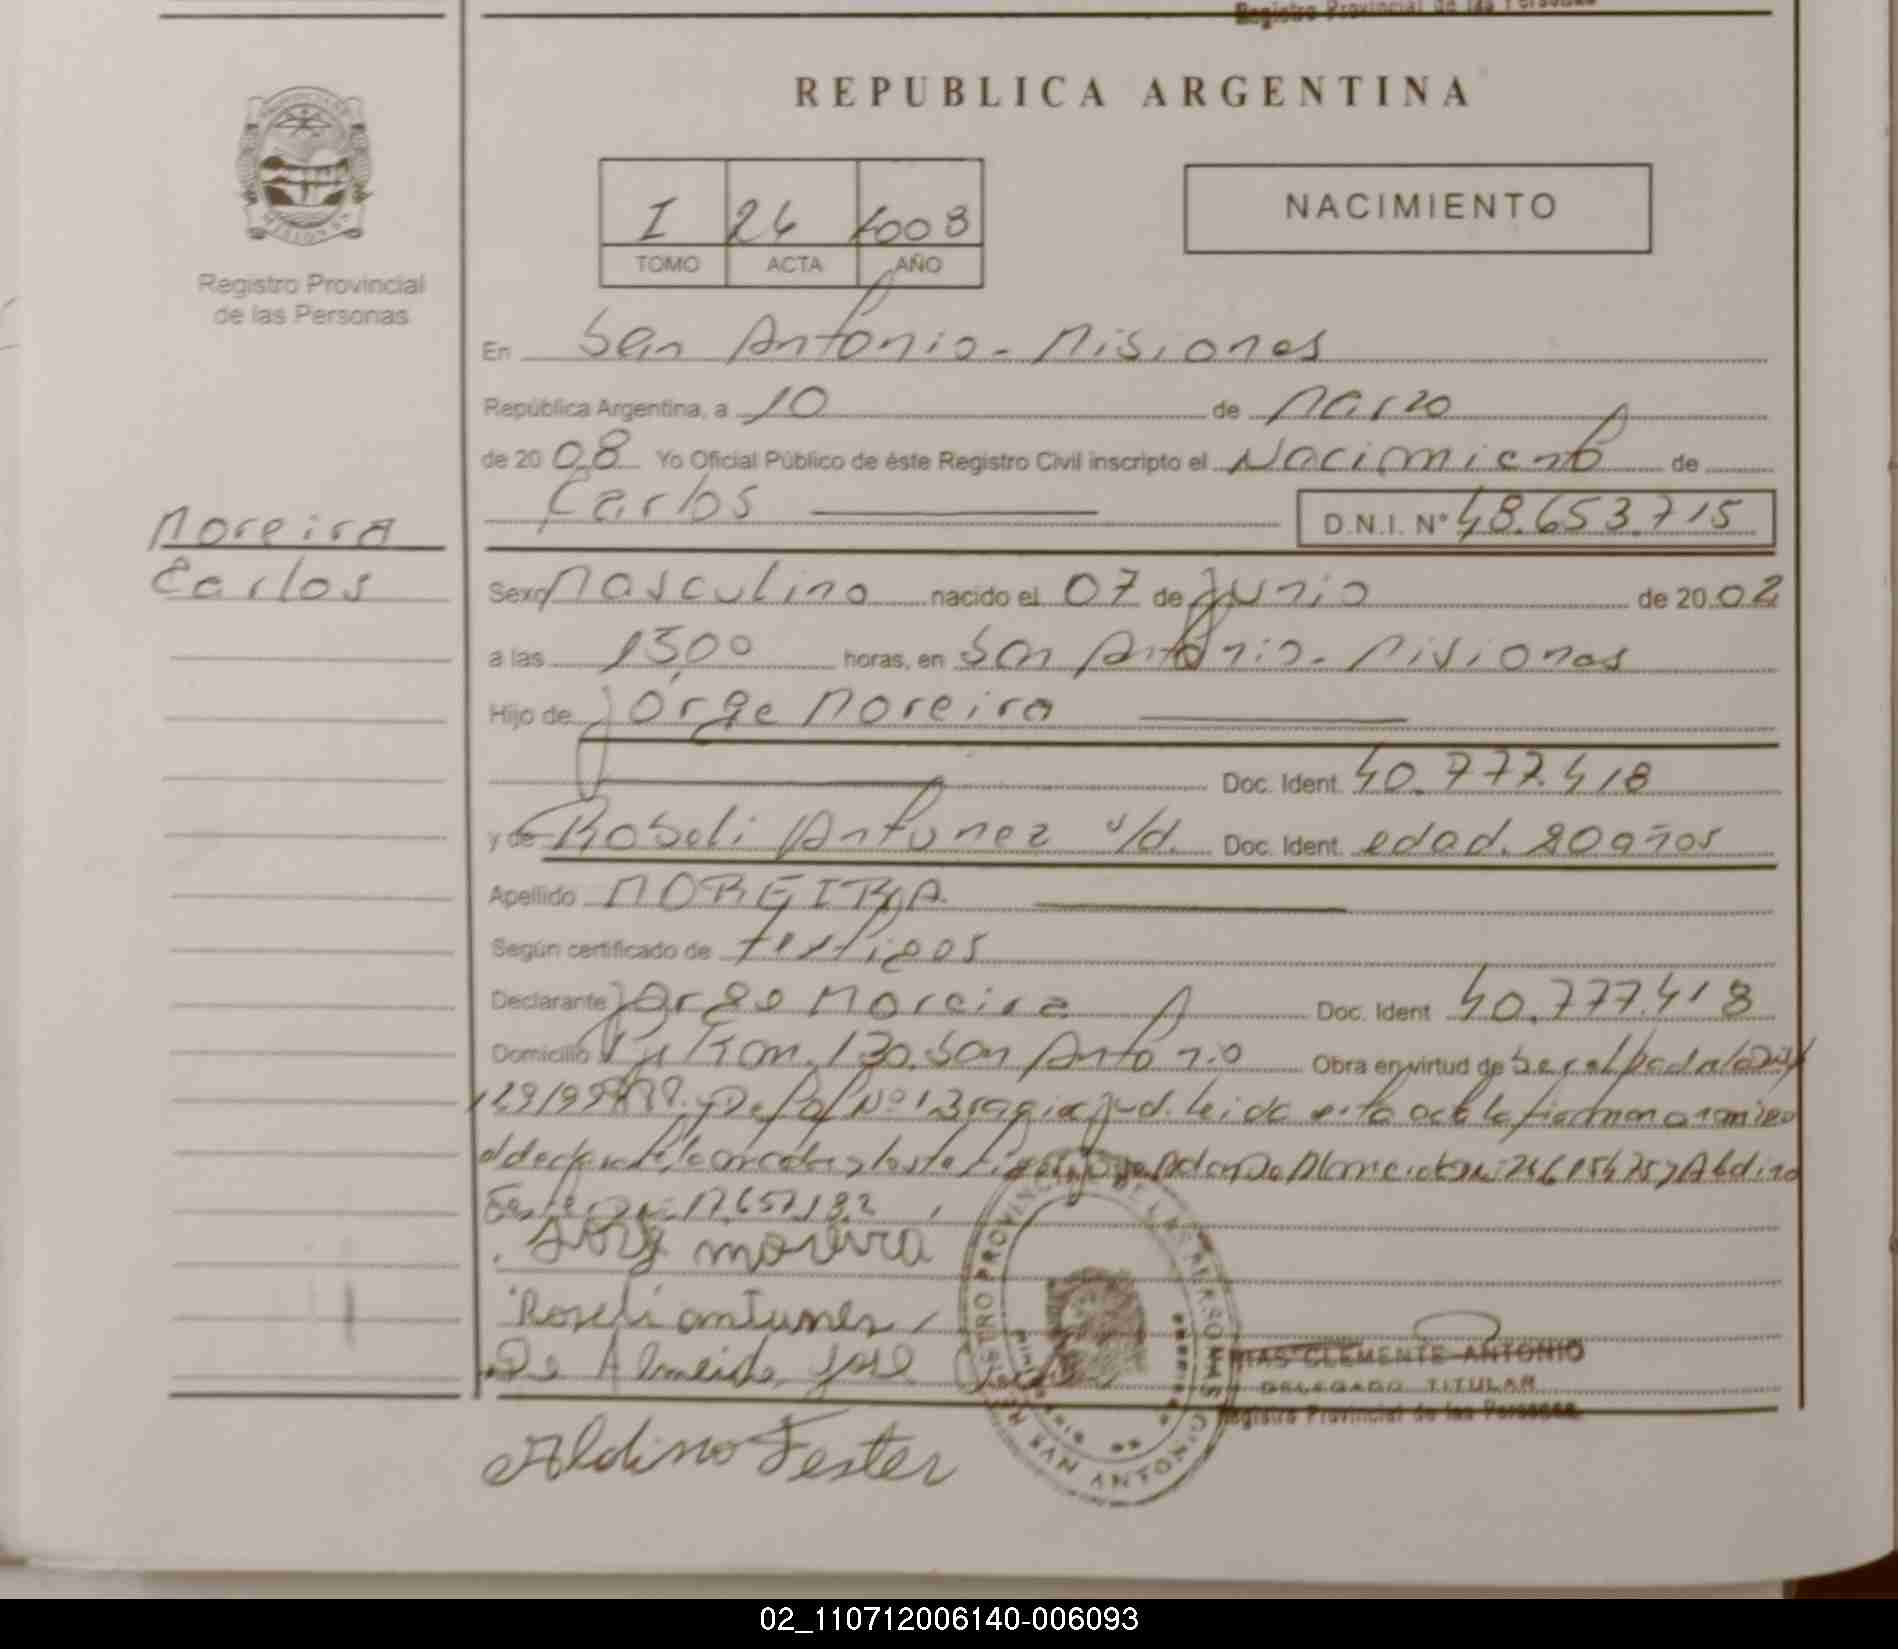 Registro Provincial de las Personas
REPUBLICA ARGENTINA
Registro Provincial
de las Personas
I 26 2008
TOMO ACTA AÑO
NACIMIENTO
En San Antonio - Misiones
República Argentina, a 10 de Marzo
de 20 08 Yo Oficial Público de éste Registro Civil inscripto el Nacimiento de
Carlos D.N.I. Nº 48.653.715
Moreira
Carlos
Sexo Masculino nacido el 07 de Junio de 20 02
a las 15,00 horas, en San Antonio - Misiones
Hijo de Jorge Moreira
Doc. Ident. 40.777.418
y de Roseli Antunez s/d. Doc. Ident. edad. 20 años
Apellido MOREIRA
Según certificado de testigos
Declarante Jorge Moreira Doc. Ident 40.777.418
Domicilio 130. San Antonio Obra en virtud de
Nº 13 jud. Leida esta acta la firman conmigo
el declarante, la y Aldino
17.657.132
Jorge moreira
Roseli antunes
De Almeida José
FRIAS CLEMENTE ANTONIO
DELEGADO TITULAR
Registro Provincial de las Personas
REGISTRO PROVINCIAL DE LAS PERSONAS
SAN ANTONIO
Aldino Fester
02_110712006140-006093